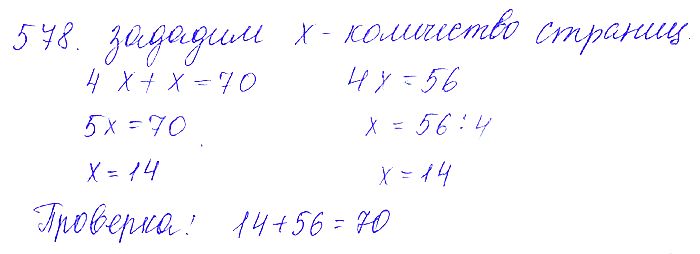 578. зададим x - количество страниц.
4 x + x = 70 4 x = 56
5x = 70 x = 56 : 4
x = 14 x = 14
Проверка: 14 + 56 = 70